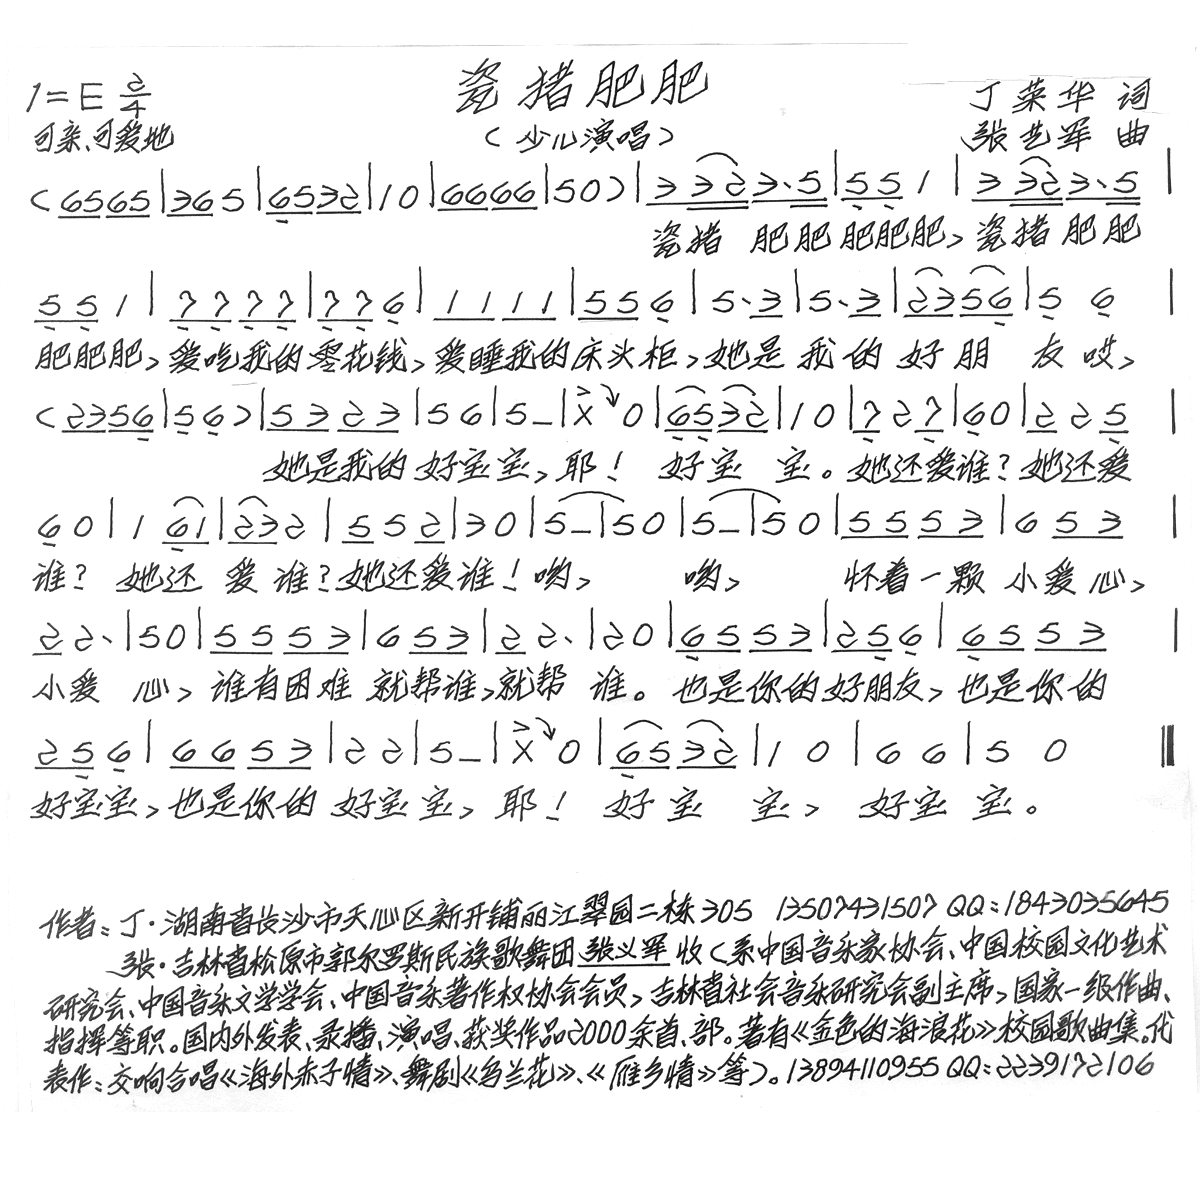 瓷猪肥肥
1=E 2/4
丁荣华 词
可亲、可爱地
(少儿演唱)
张艺军 曲
(6565|365|6532|10|6666|50)|3 323·5|551|3 323·5|
瓷猪 肥肥肥肥肥,瓷猪肥肥
551|7777|776|1111|556|5·3|5·3|2356|5 6|
肥肥肥,爱吃我的零花钱,爱睡我的床头柜,她是我的好朋 友哎,
(2356|56)|5323|56|5–|X 0|6532|10|727|60|225|
她是我的好宝宝,耶!好宝 宝。她还爱谁?她还爱
60|1 61|232|552|30|5–|50|5–|50|5553|653|
谁? 她还 爱谁?她还爱谁!哟, 哟, 怀着一颗小爱心,
22·|50|5553|653|22·|20|6553|256|6553|
小爱 心,谁有困难就帮谁,就帮 谁。也是你的好朋友,也是你的
256|6653|22|5–|X 0|6532|1 0|66|5 0‖
好宝宝,也是你的好宝宝,耶! 好宝 宝, 好宝宝。
作者:丁·湖南省长沙市天心区新开铺丽江翠园二栋305 13507431507 QQ:1843035645
张·吉林省松原市郭尔罗斯民族歌舞团张义军收(系中国音乐家协会、中国校园文化艺术
研究会、中国音乐文学学会、中国音乐著作权协会会员,吉林省社会音乐研究会副主席,国家一级作曲、
指挥等职。国内外发表、录播、演唱、获奖作品2000余首、部。著有《金色的海浪花》校园歌曲集。代
表作:交响合唱《海外赤子情》、舞剧《乌兰花》、《雁乡情》等)。13894110955 QQ:2239172106